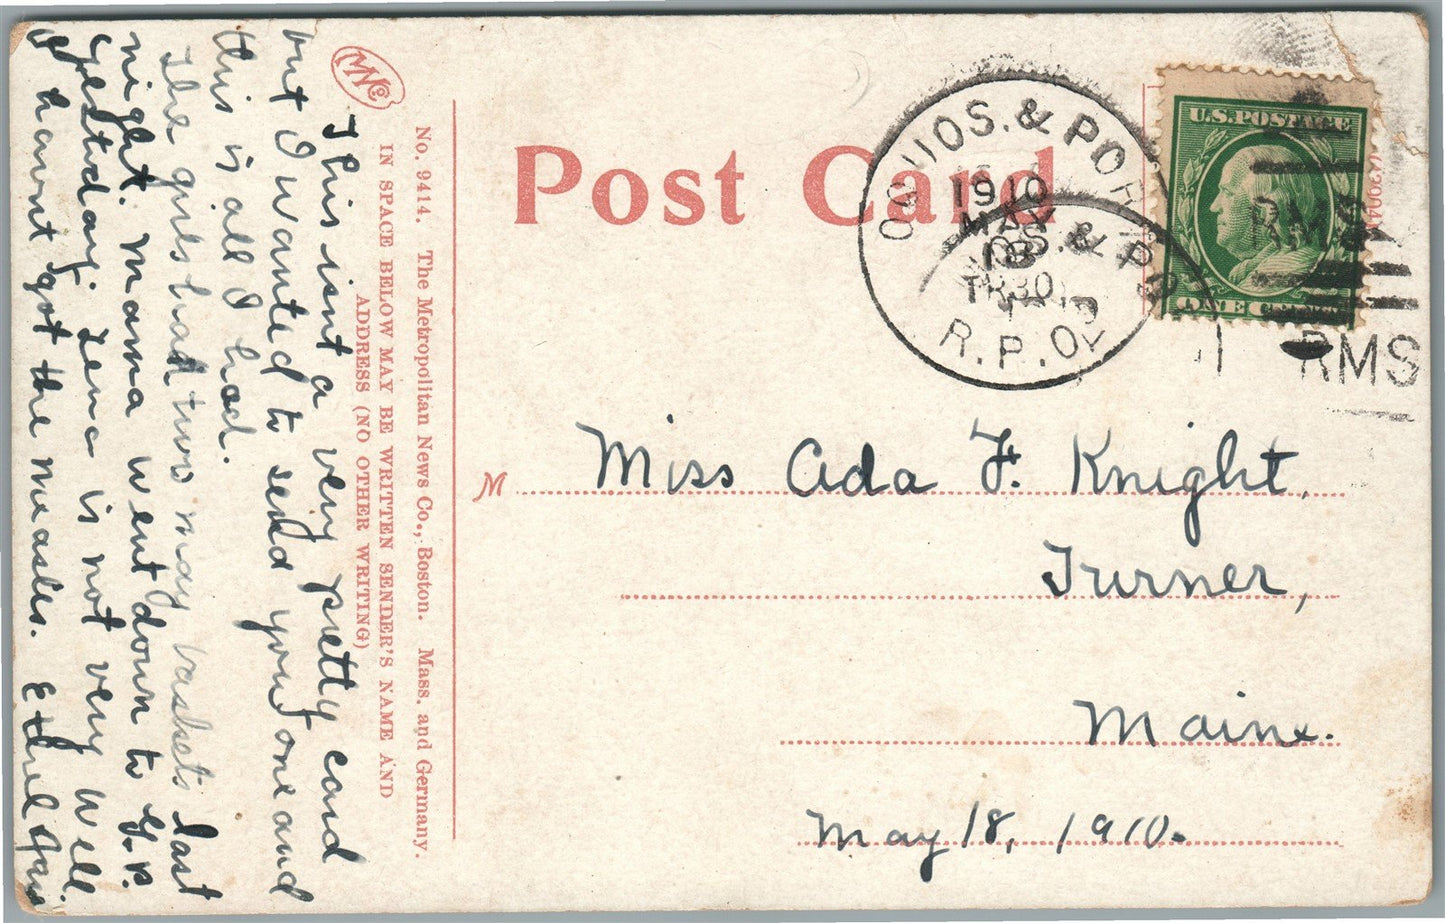 This isnt a very pretty card
but I wanted to send you one and
this is all I had.
The girls had two may baskets last
night. Mama went down to G.P.
yestday. Lena is not very well
I havnt got the measles. Ethel
MNCo
No. 9414. The Metropolitan News Co., Boston. Mass. and Germany.
IN SPACE BELOW MAY BE WRITTEN SENDER'S NAME AND
ADDRESS (NO OTHER WRITING)
Post Card
& POR
1910
MAY
18
R.P.O.
U.S. POSTAGE
ONE CENT
RMS
RMS
M Miss Ada F. Knight,
Turner,
Maine.
May 18, 1910.